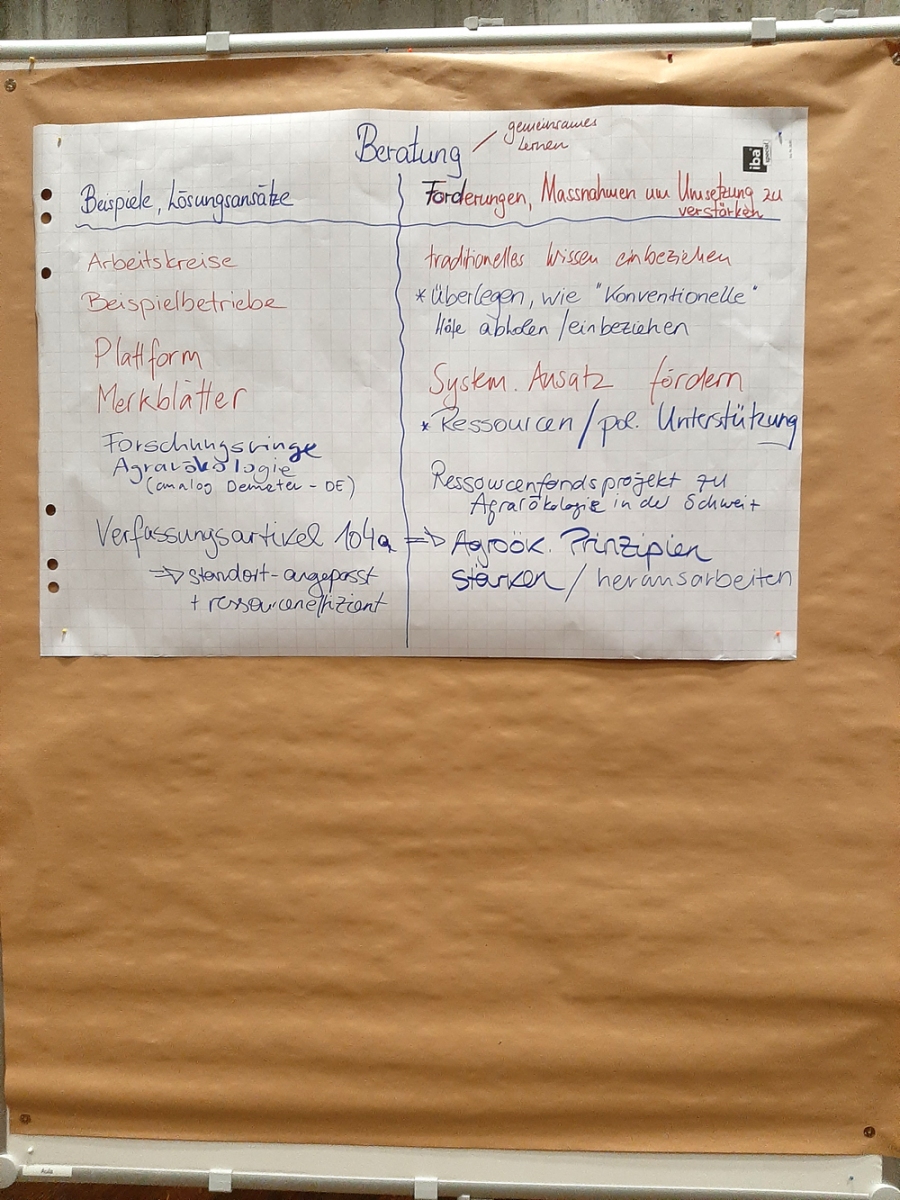 Beratung
gemeinsames
Lernen
iba
Beispiele, Lösungsansätze
Arbeitskreise
Beispielbetriebe
Plattform
Merkblätter
Forschungsringe
Agrarökologie
(analog Demeter - DE)
Verfassungsartikel 104a
⇒ standort-angepasst
+ ressourceneffizient
Forderungen, Massnahmen um Umsetzung zu
verstärken
traditionelles Wissen einbeziehen
* überlegen, wie "Konventionelle"
Höfe abholen / einbeziehen
System. Ansatz fördern
* Ressourcen / pol. Unterstützung
Ressourcenfondsprojekt zu
Agrarökologie in der Schweit
⇒ Agroök. Prinzipien
stärken / herausarbeiten
Aula